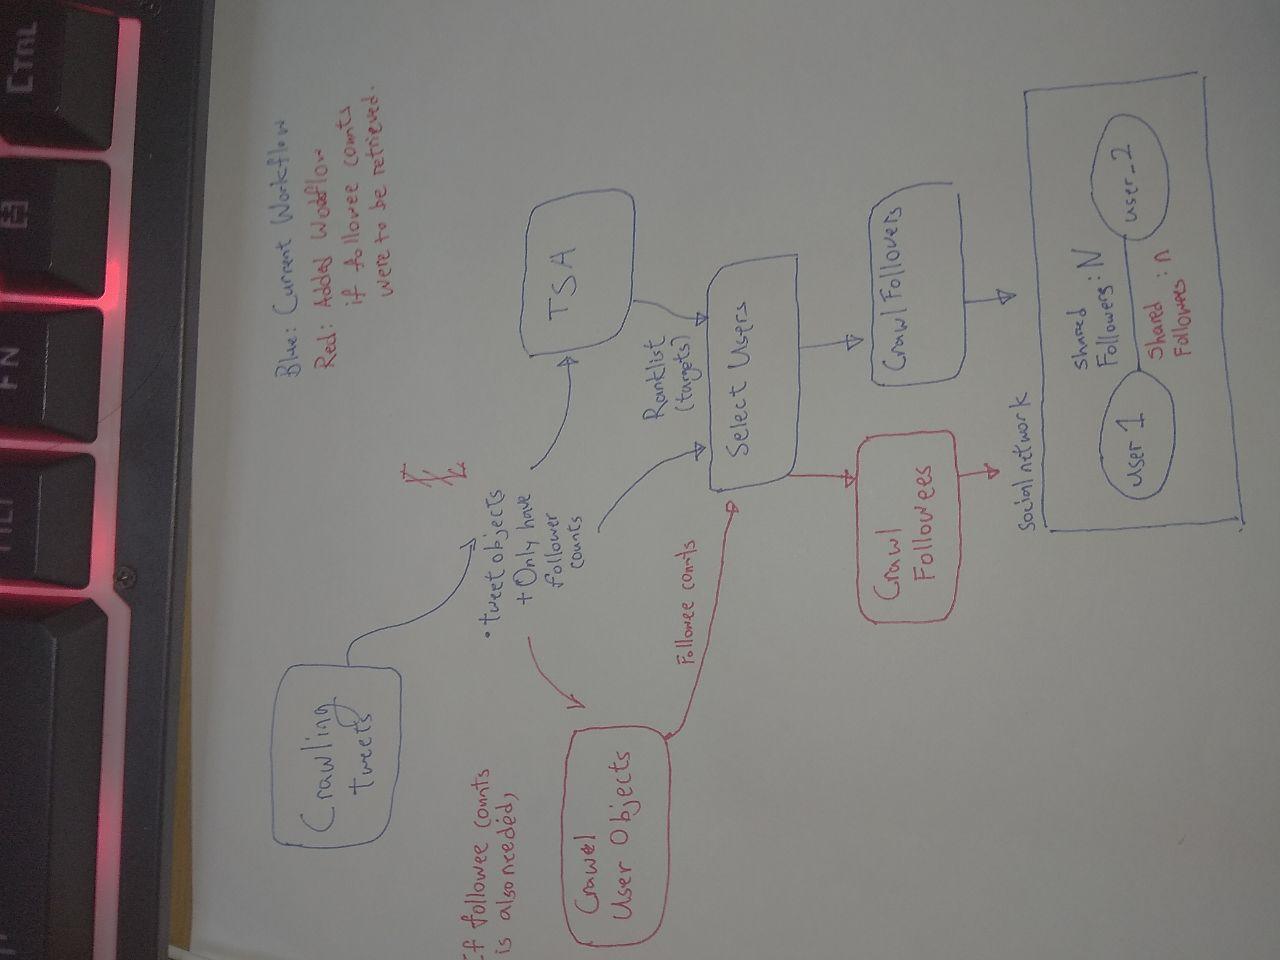 FN
CTRL
Blue: Current Workflow
Red: Added Workflow
if followee counts
were to be retrieved.
Crawling
tweets
If followee counts
is also needed,
• tweet objects
+ Only have
follower
counts
TSA
Crawel
User Objects
Ranklist
(targets)
Followee counts
Select Users
Crawl
Followees
Crawl Followers
Social network
Shared
Followers: N
user 1
user_2
Shared
Followees : n